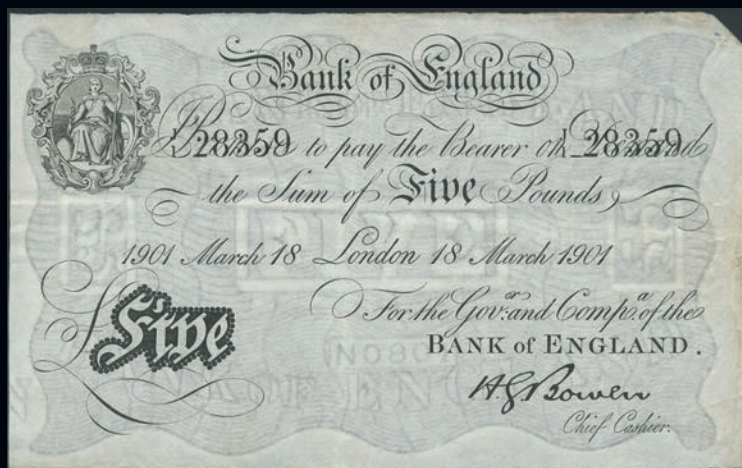 Bank of England
I Promise to pay the Bearer on Demand
28359 28359
the Sum of Five Pounds
1901 March 18 London 18 March 1901
For the Gov.r and Comp.a of the
BANK of ENGLAND.
£Five
H.G. Bowen
Chief Cashier.